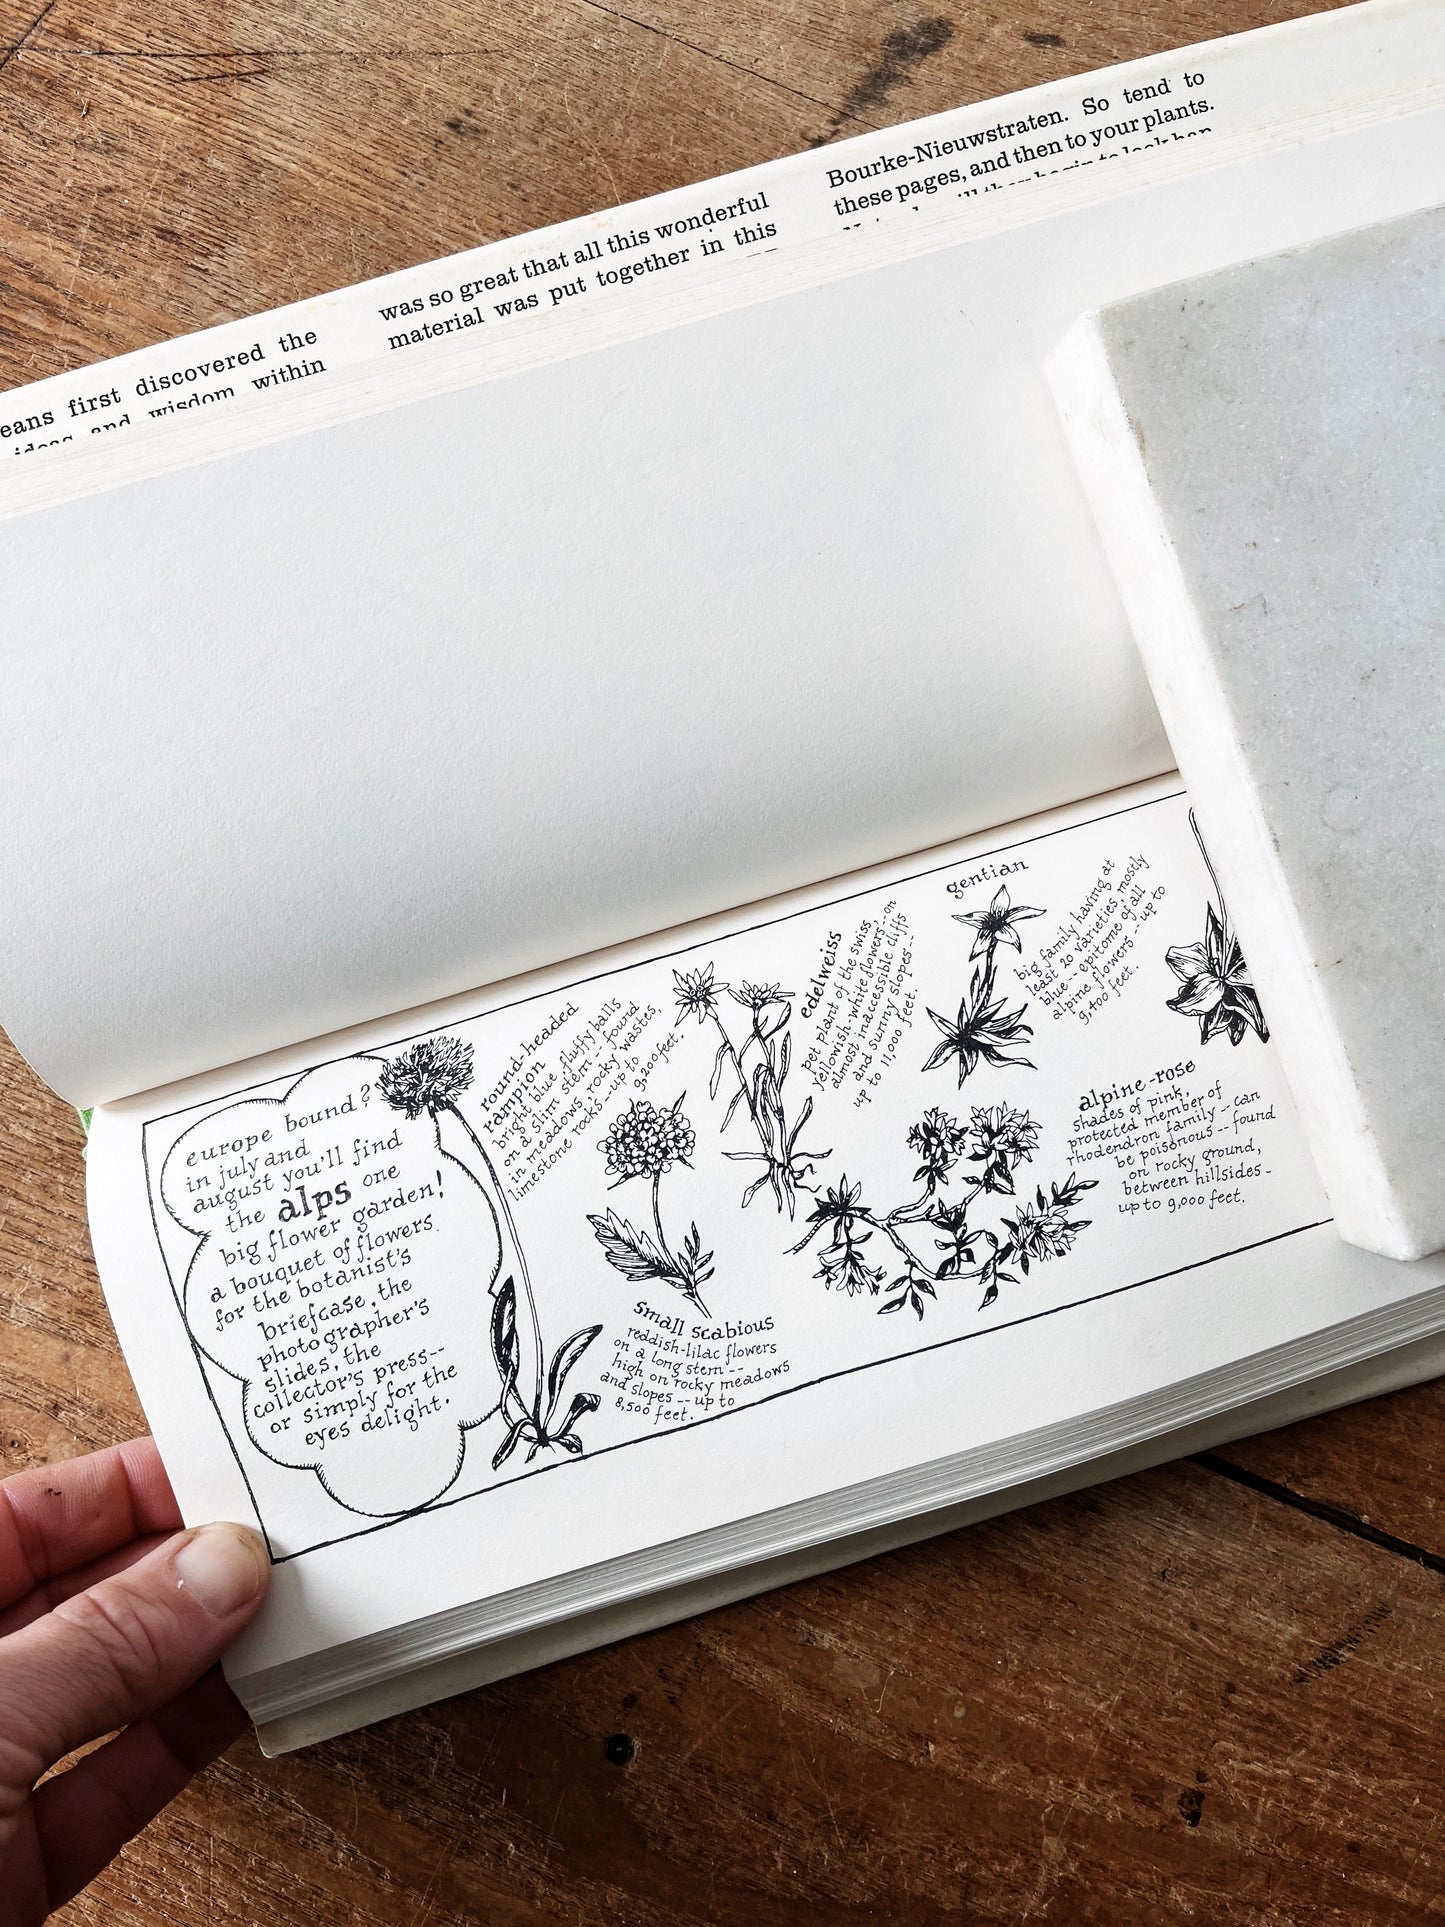 eans first discovered the
ideas and wisdom within
was so great that all this wonderful
material was put together in this
Bourke-Nieuwstraten. So tend to
these pages, and then to your plants.
will they begin to look
europe bound?
in july and
august you'll find
the alps one
big flower garden!
a bouquet of flowers
for the botanist's
briefcase, the
photographer's
slides, the
collector's press--
or simply for the
eyes delight.
round-headed
rampion
bright blue, fluffy balls
on a slim stem -- found
in meadows, rocky wastes,
limestone rocks -- up to
9,200 feet.
small scabious
reddish-lilac flowers
on a long stem --
high on rocky meadows
and slopes -- up to
8,500 feet.
edelweiss
pet plant of the swiss,
yellowish-white flowers, -- on
almost inaccessible cliffs
and sunny slopes --
up to 11,000 feet.
gentian
big family having at
least 20 varieties mostly
blue -- epitome of all
alpine flowers -- up to
9,400 feet.
alpine-rose
shades of pink,
protected member of
rhodendron family -- can
be poisonous -- found
on rocky ground,
between hillsides -
up to 9,000 feet.